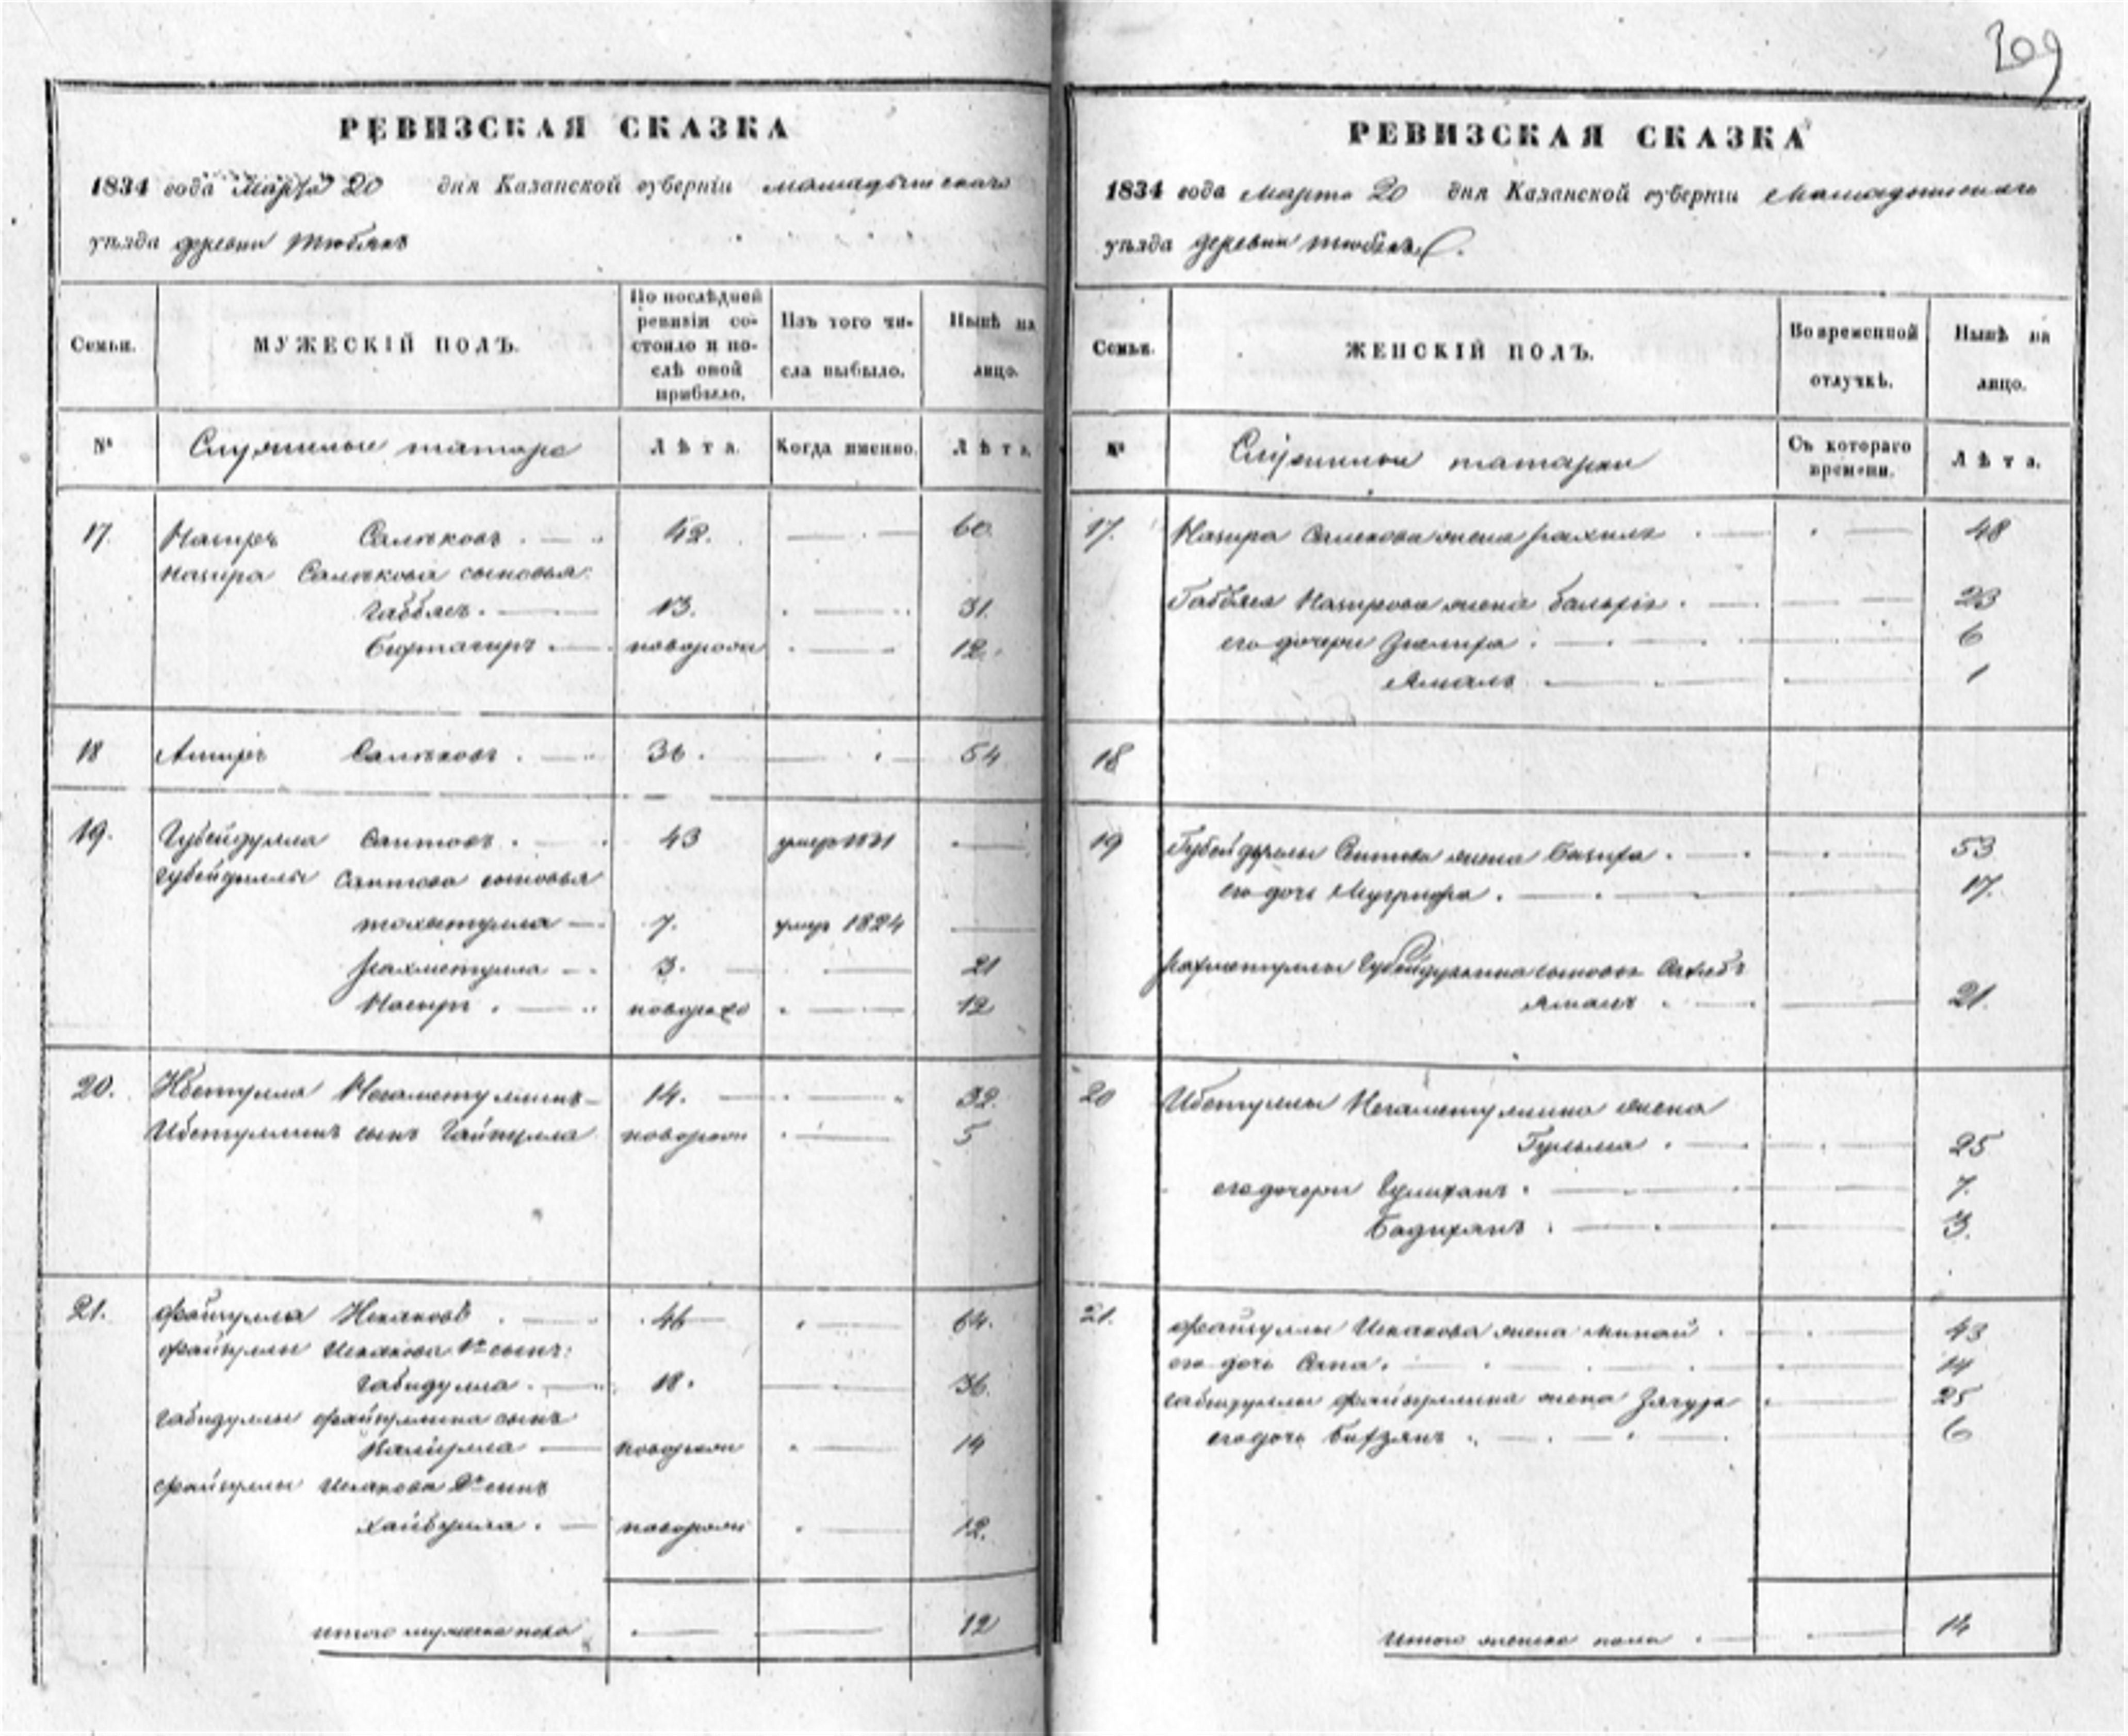 209
РЕВИЗСКАЯ СКАЗКА
1834 года Марта 20 дня Казанской губерніи мамадышскаго
уѣзда деревни Тюбяк
Семьи.
МУЖЕСКІЙ ПОЛЪ.
По послѣдней ревизіи состояло и послѣ оной прибыло.
Изъ того числа выбыло.
Нынѣ на лицо.
№ Служилые татаре Лѣта. Когда именно. Лѣта.
17. Назиръ Саляковъ 42. 60.
Назира Салякова сыновья:
Габбясъ 13. 31.
Бикташиръ новорож 12.
18 Амиръ Саляковъ 36. 54
19. Губейдулла Саитовъ 43 умер 1831
Губейдуллы Саитова сыновья
7. умер 1824
Рахметулла 3. 21
Насыръ новорожд 12
20. Ибетулла Негаметуллинъ 14. 32.
Ибетуллинъ сынъ Гайнулла новорожд 5
21. Файзулла Исхаковъ 46 64.
Файзуллы Исхакова 1й сынъ:
Габидулла 18. 36.
Габидуллы Файзуллина сынъ
Валиулла новорожд 14
Файзуллы Исхакова 2й сынъ
Хайбулла новорожд 12.
итого мужеска пола 12
РЕВИЗСКАЯ СКАЗКА
1834 года Марта 20 дня Казанской губерніи Мамадышскаго
уѣзда деревни Тюбяк
Семьи.
ЖЕНСКІЙ ПОЛЪ.
Во временной отлучкѣ.
Нынѣ на лицо.
№ Служилыи татарки Съ котораго времени. Лѣта.
17. Назира Салякова жена Рахиля 48
Габбяса Назирова жена 23
его дочери 6
Ямаль 1
18
19 Губейдуллы Саитова жена Базира 53
его дочь 17.
Рахметуллы Губейдуллина
Ямалъ 21.
20 Ибетуллы Негаметуллина жена
25
его дочери Гулиханъ 7.
Бадиханъ 3.
21. Файзуллы Исхакова жена 43
его дочь Сяна 14
Габидуллы Файзуллина жена 25
его дочь 6
Итого женска пола 14